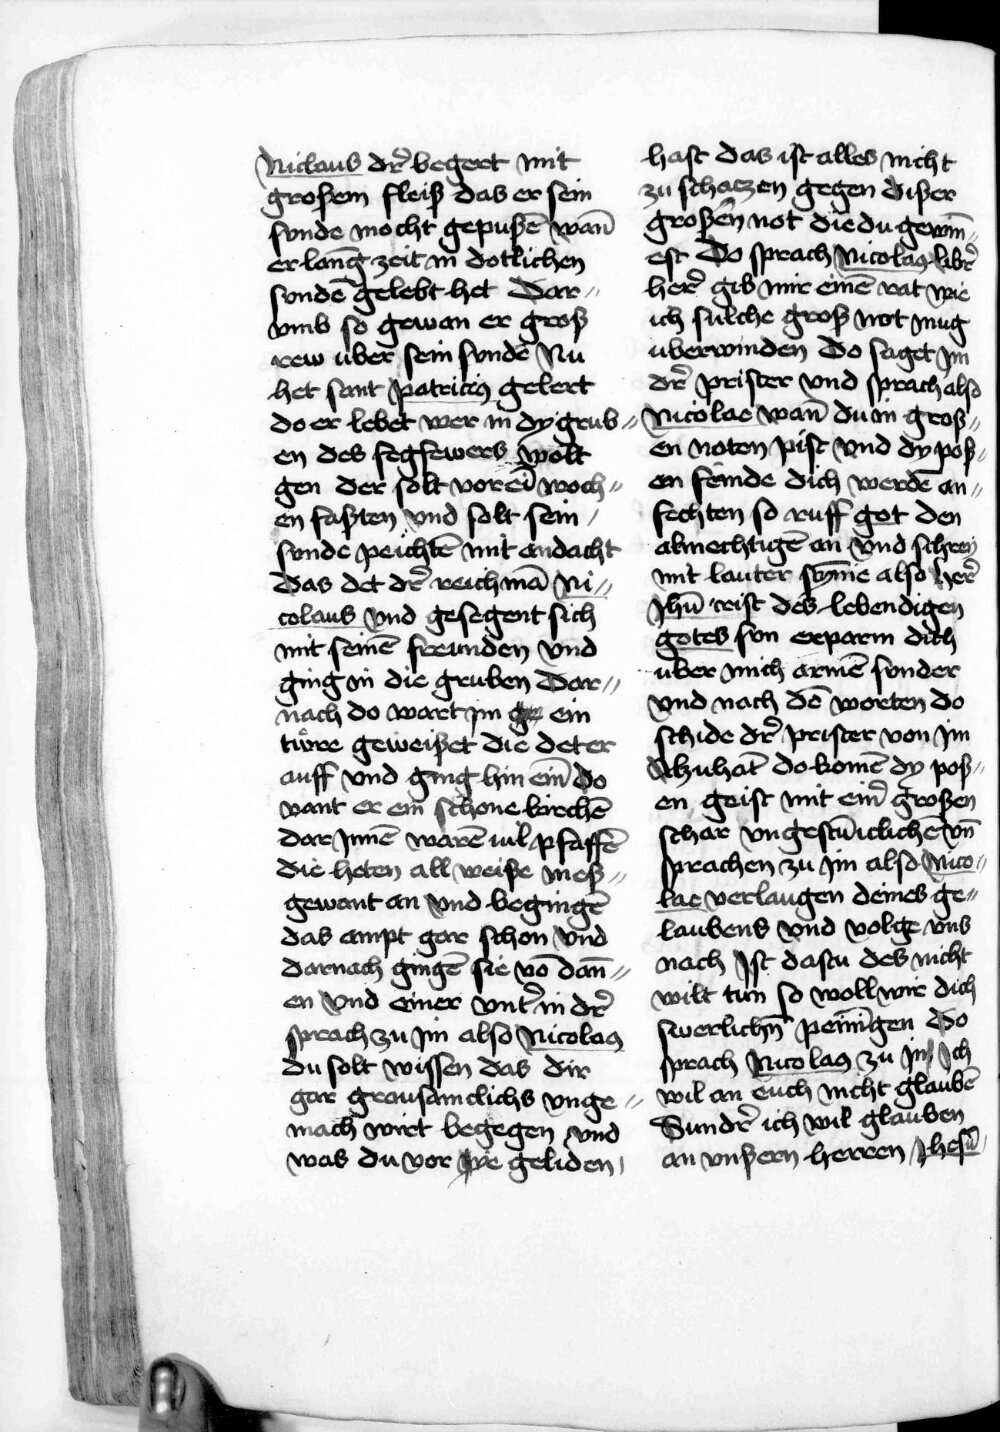 Niclaus dr̃ begert mit
großem fleiß das er sein
sunde mocht gepußē wañ
er lang zeit in dotlichen
sundē gelebt het Dar⸗
vmb so gewan er groß
rew uber sein sunde Nu
het sant patricius gelert
do er lebet wer in dy grub⸗
en des fegfewers wolt
gen der solt vor eī woch⸗
en fasten vnd solt sein
sunde peichtē mit andacht
das det dr̃ reich mā Ni⸗
colaus vnd gesegent sich
mit seinē freunden vnd
ging in die gruben Dar⸗
nach do wart jm ein
tuͤre geweißet die det er
auff vnd ging hin ein do
vant er ein schone kirchē
dar jnnē warē vil pfaffē
die heten all weiße meß⸗
gewant an vnd begingē
das ampt gar schon vnd
darnach gingē sie vō dañ⸗
en vnd einer vnt̃ in dr̃
sprach zu jm also Nicolaus
du solt wissen das dir
gar grausamclichs vnge⸗
mach wirt begegen vnd
was du vor ye geliden
hast das ist alles nicht
zu schaczen gegen dißer
großēn not die du gewin̄⸗
est Do sprach Nicolaus libr̃
her̃ gib mir einē rat wie
ich sulche groß not mug
uberwinden Do saget jm
dr̃ prister vnd sprach also
Nicolae wañ du in groß⸗
en noten pist vnd dy pöß⸗
en feinde dich werdē an⸗
fechten so ruff got den
almechtigē an vnd schrey
mit lauter stym̄e also her̃
Jhū crist des lebendigen
gotes sun erparm dich
uber mich armē sunder
vnd nach dē worten do
schide dr̃ prister von jm
Alzuhāt do komē dy pos⸗
en geist mit ein̄ großen
schar vngestuͤmclichē vñ
sprachen zu jm also Nico⸗
lae verlaugen deines ge⸗
laubens vnd volge vns
nach Ist dastu des nicht
wilt tun so woll wir dich
swerlichn̄ peinigen Do
sprach Nicolaus zu jn Ich
wil an euch nicht glaubē
Sundr̃ ich wil glauben
an vnßern herren Jhesū